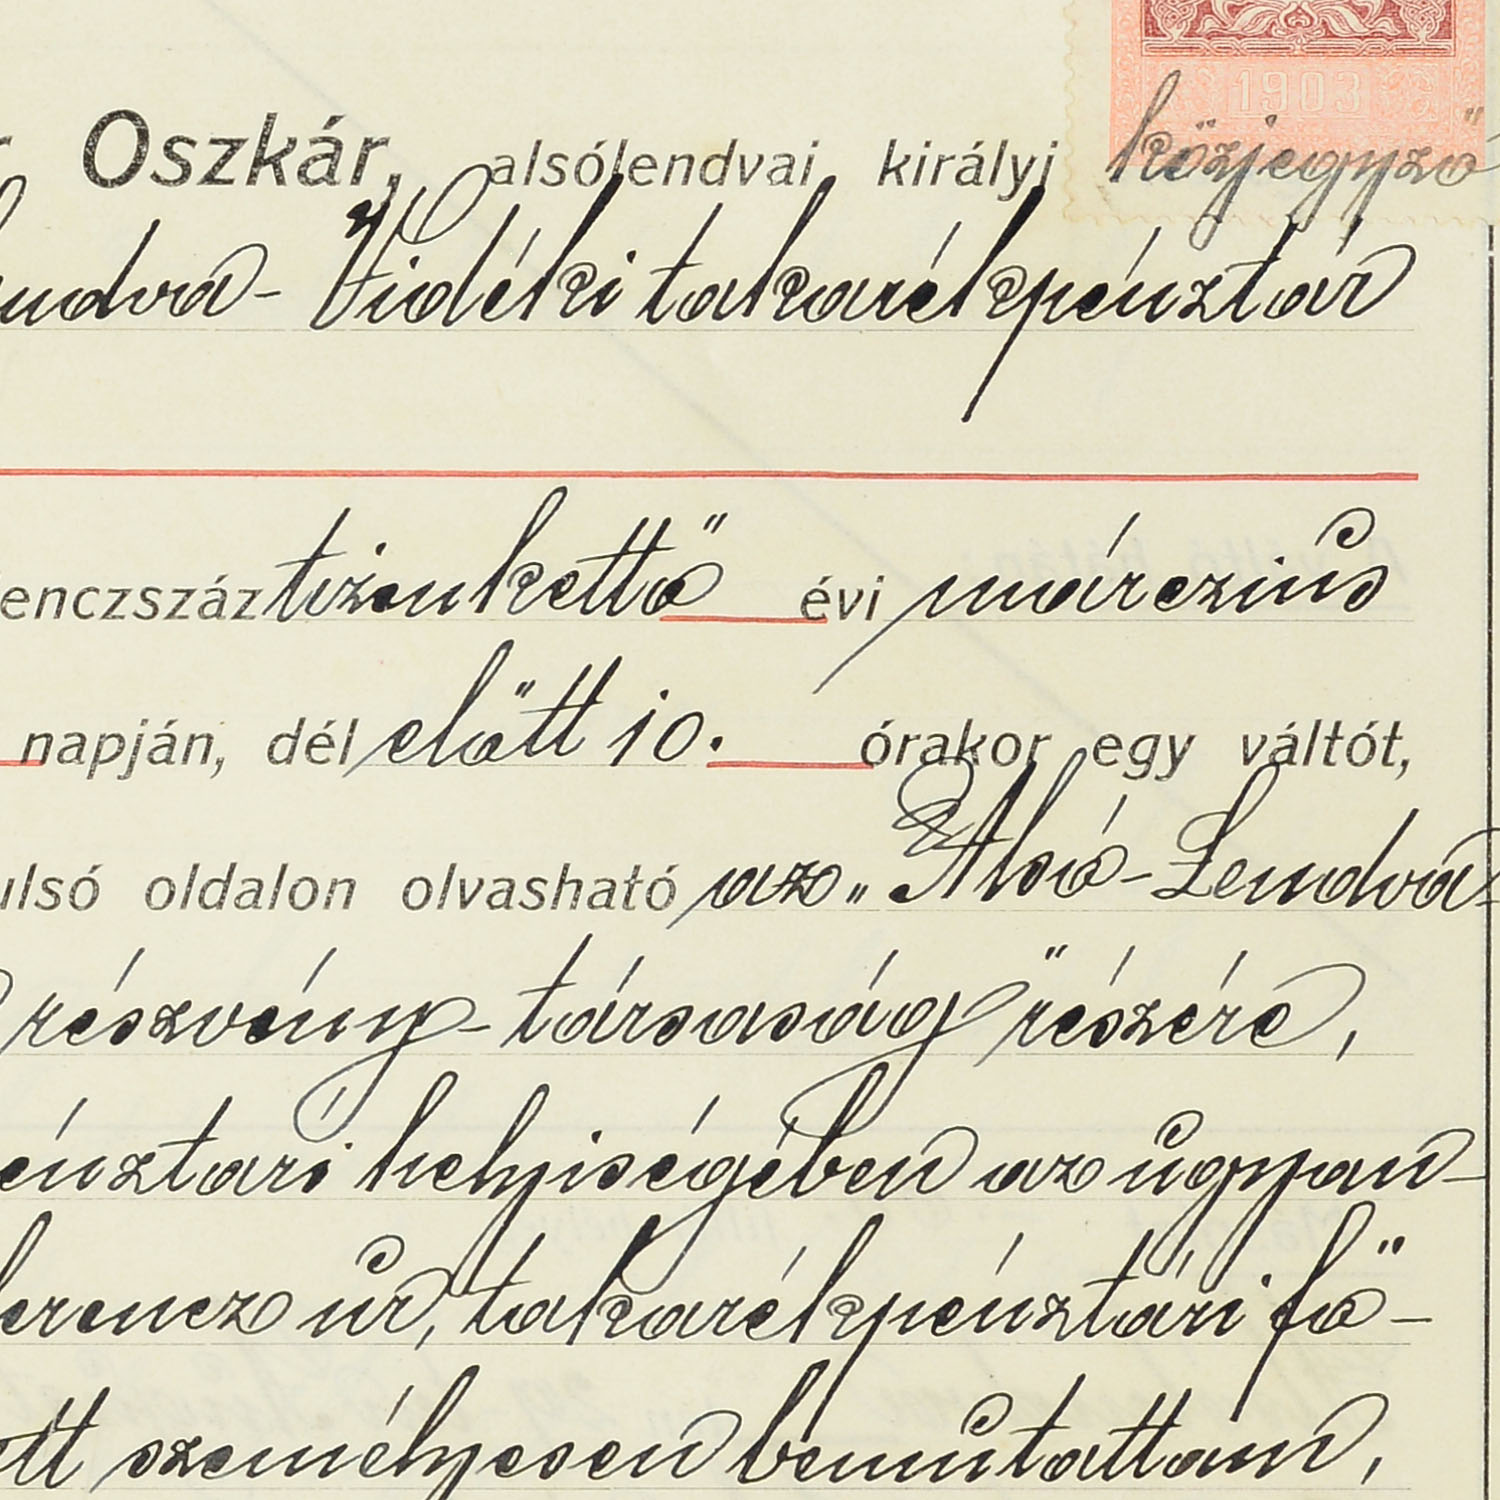 1903
Oszkár, alsólendvai királyi közjegyző
Vidéki takarékpénztár
enczszáz tizenkettő évi márczius
napján, dél előtt 10. órakor egy váltót,
ulsó oldalon olvasható az „Alsó-Lendva-
részvény-társaság" részére,
énztári helyiségében az ugyan-
erencz úr, takarékpénztári fő-
ott személyesen bemutattam,